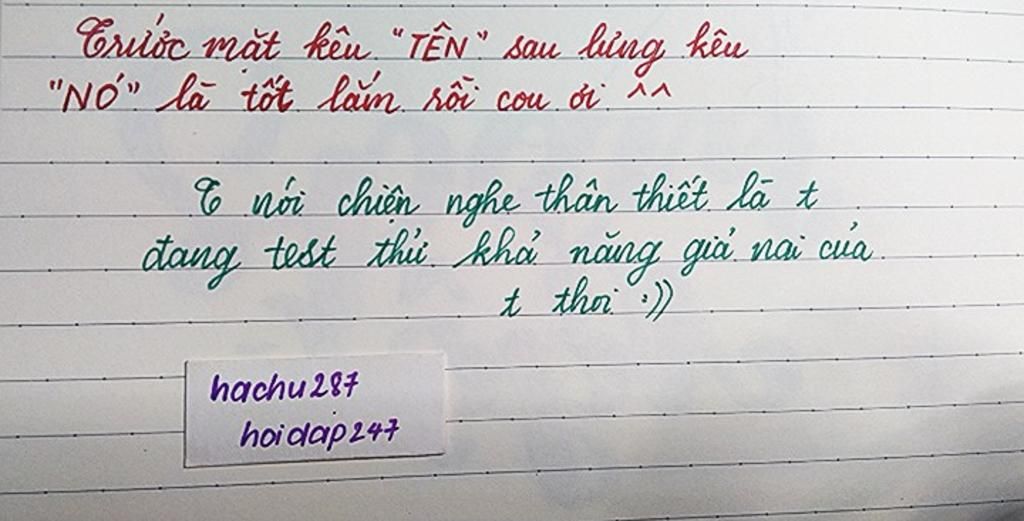 Trước mặt kêu "TÊN" sau lưng kêu
"NÓ" là tốt lắm rồi cou ơi ^^
T nói chiện nghe thân thiết là t
đang test thử khả năng giả nai của
t thoi :))
hachu287
hoidap247